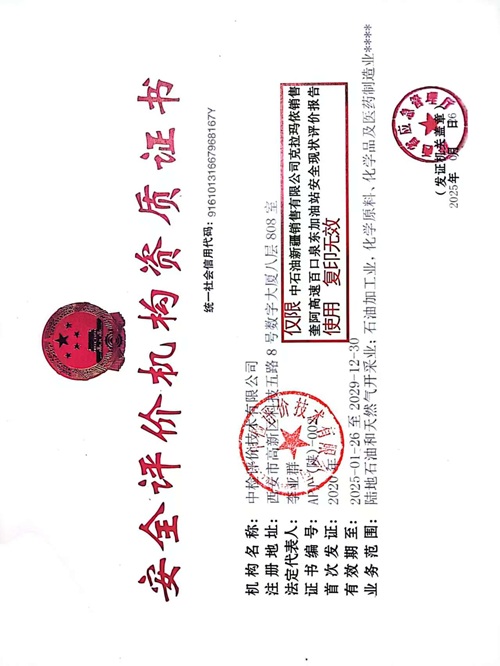 安全评价机构资质证书
统一社会信用代码: 91610131667968167Y
机构名称: 中检评价技术有限公司
注册地址: 西安市高新区科技五路8号数字大厦八层808室
法定代表人: 李亚群
证书编号:
首次发证:
有效期至: 2025-01-26 至 2029-12-30
业务范围: 陆地石油和天然气开采业; 石油加工业, 化学原料、化学品及医药制造业****
仅限 中石油新疆销售有限公司克拉玛依销售
奎阿高速百口泉东加油站安全现状评价报告
使用 复印无效
(发证机关盖章)
2025年